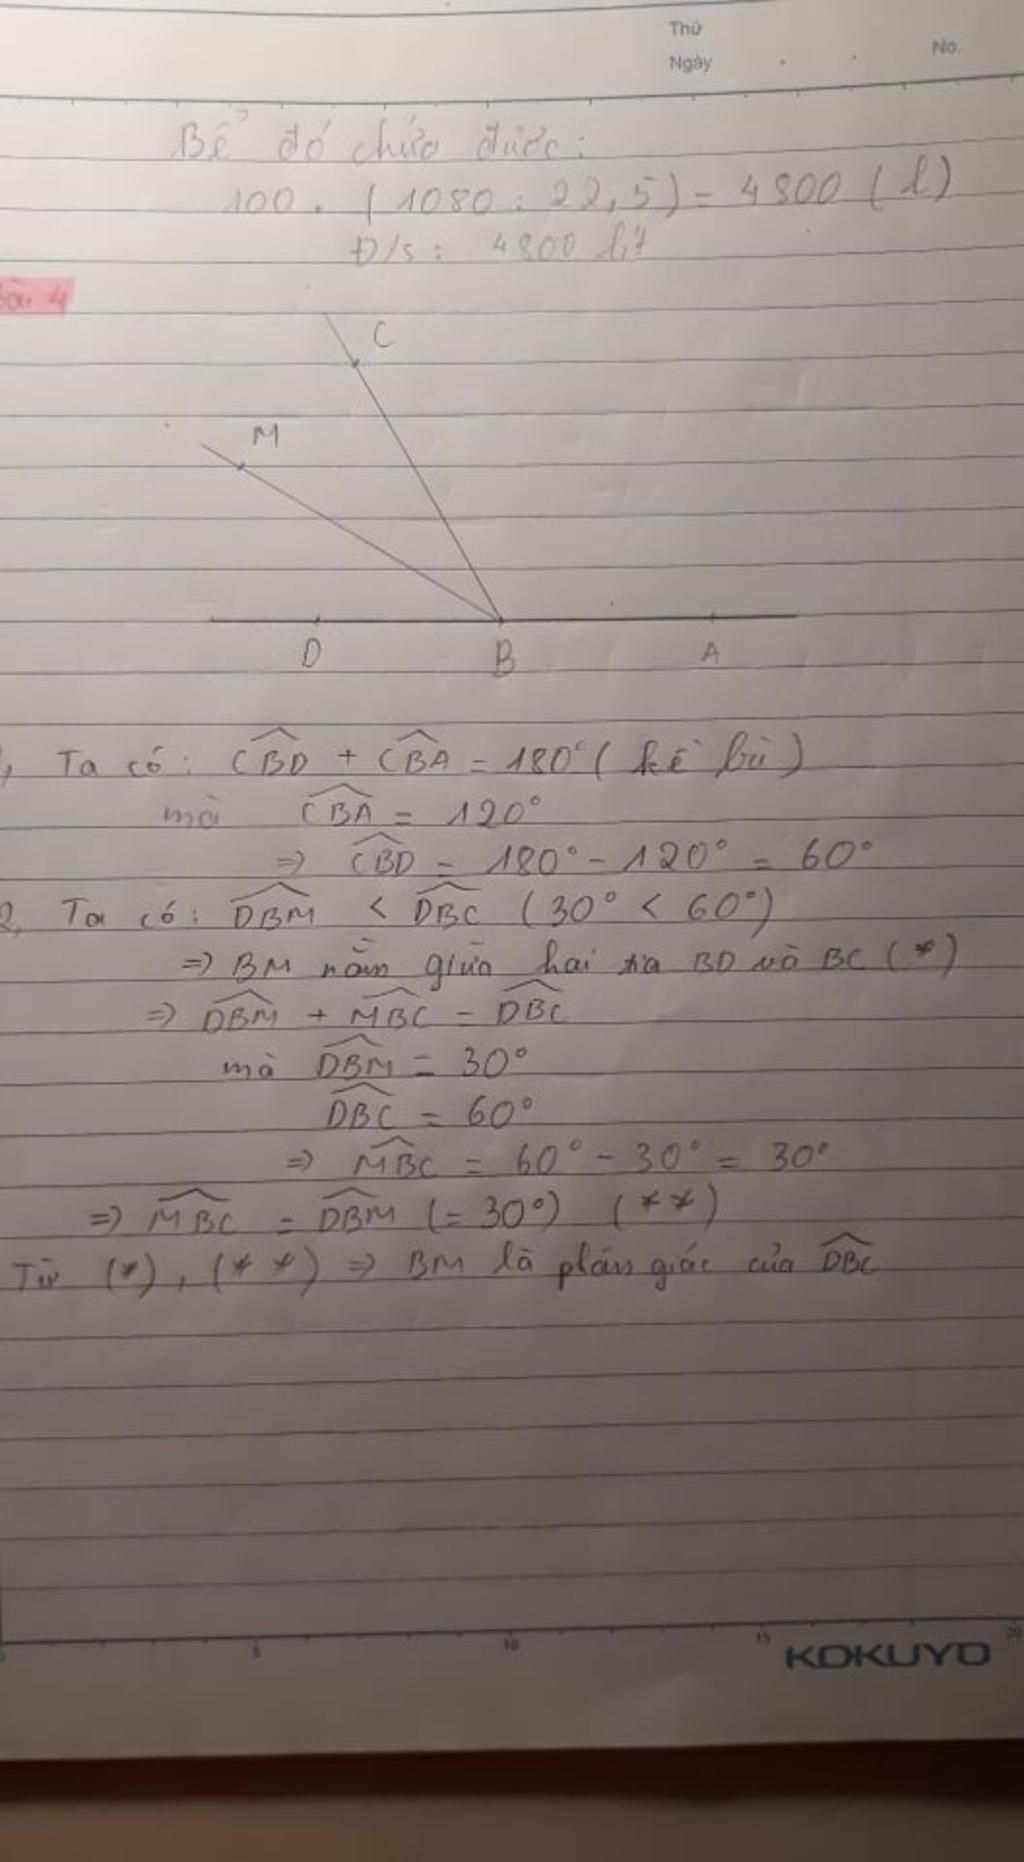 Thứ
Ngày
No.
Bể đó chứa được:
100 . (1080 : 22,5) = 4800 (l)
Đ/s: 4800 lít
Bài 4
C
M
D B A
Ta có: CBD + CBA = 180° (kề bù)
mà CBA = 120°
=> CBD = 180° - 120° = 60°
2, Ta có: DBM < DBC (30° < 60°)
=> BM nằm giữa hai tia BD và BC (*)
=> DBM + MBC = DBC
mà DBM = 30°
DBC = 60°
=> MBC = 60° - 30° = 30°
=> MBC = DBM (= 30°) (**)
Từ (*), (**) => BM là phân giác của DBC
5 10 15 20
KOKUYO